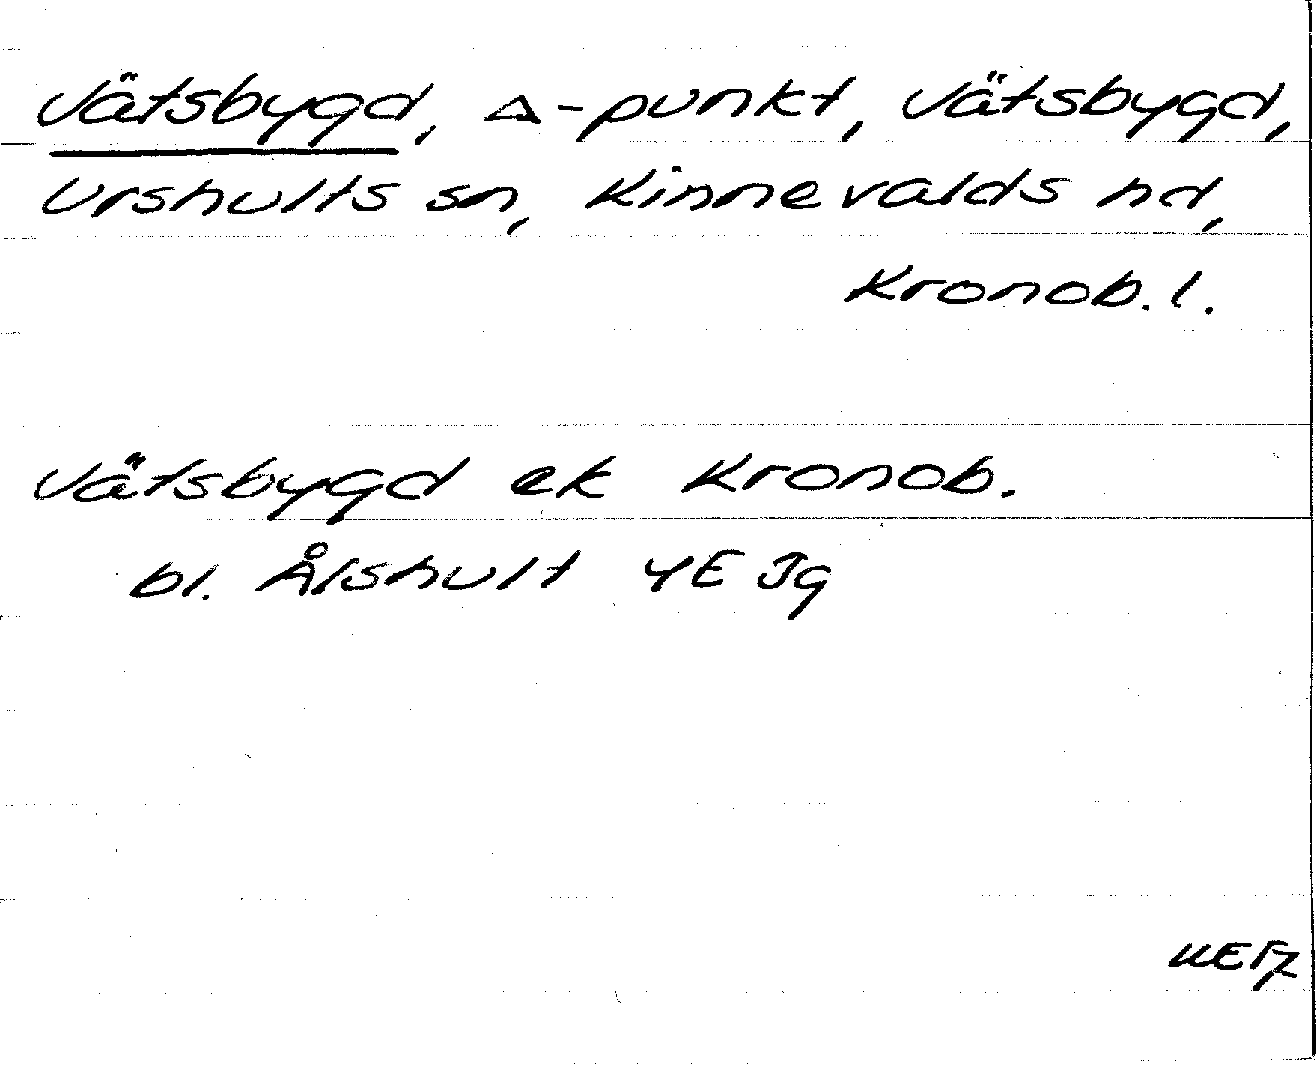 Jätsbygd, △-punkt, Jätsbygd,
Urshults sn, Kinnevalds hd,
Kronob. l.
Jätsbygd ek Kronob.
bl. Ålshult 4E Jg